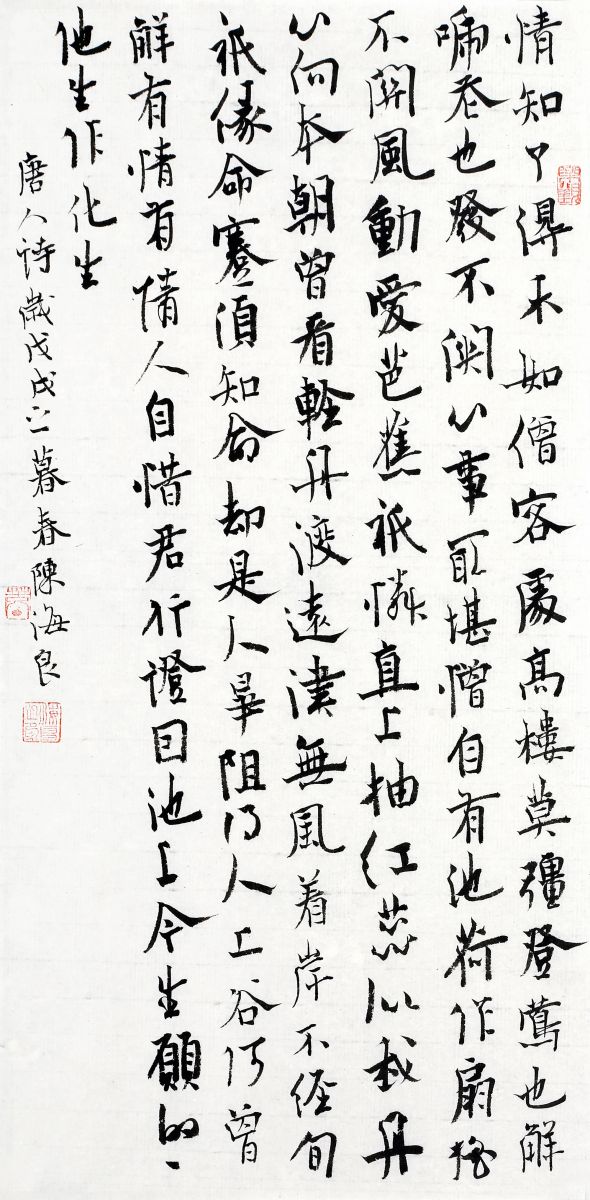 情知了得未如僧客處高樓莫彊登鶯也解
啼花也發不關心事最堪憎自有池荷作扇搖
不關風動愛芭蕉祇憐直上抽紅蕊似我丹
心向本朝曾看輕舟渡遠津無風着岸不經旬
祇緣命蹇須知命却是人爭阻得人上谷何曾
解有情有情人自惜君行證因池上今生願的〻
他生作化生
唐人詩歲戊戌之暮春陳海良